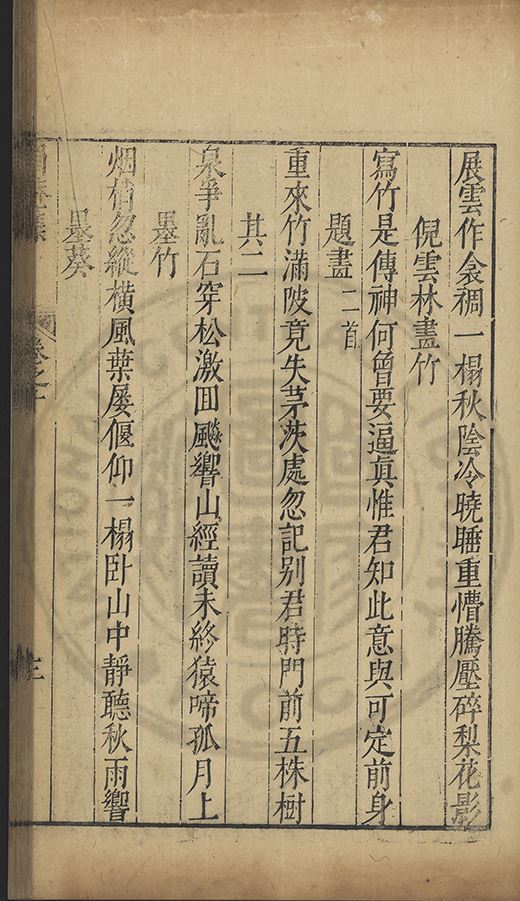 展雲作衾裯一榻秋陰冷曉睡重懵騰壓碎梨花影
倪雲林畫竹
寫竹是傳神何曾要逼真惟君知此意與可定前身
題畫二首
重來竹滿陂竟失茅茨處忽記别君時門前五株樹
其二
泉爭亂石穿松激回飇響山經讀未終猿啼孤月上
墨竹
烟梢忽縱橫風葉屡偃仰一榻卧山中靜聽秋雨響
墨葵
卷之